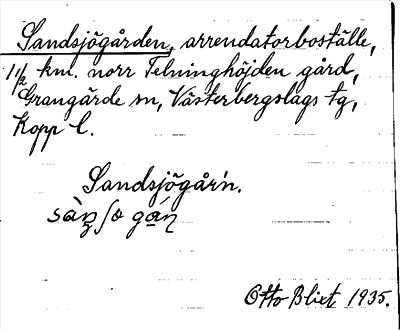 Sandsjögården, arrendatorboställe,
1½ km. norr Telninghöjden gård,
Grangärde sn, Västerbergslags tg,
Kopp l.
Sandsjögår'n.
Otto Blixt, 1935.